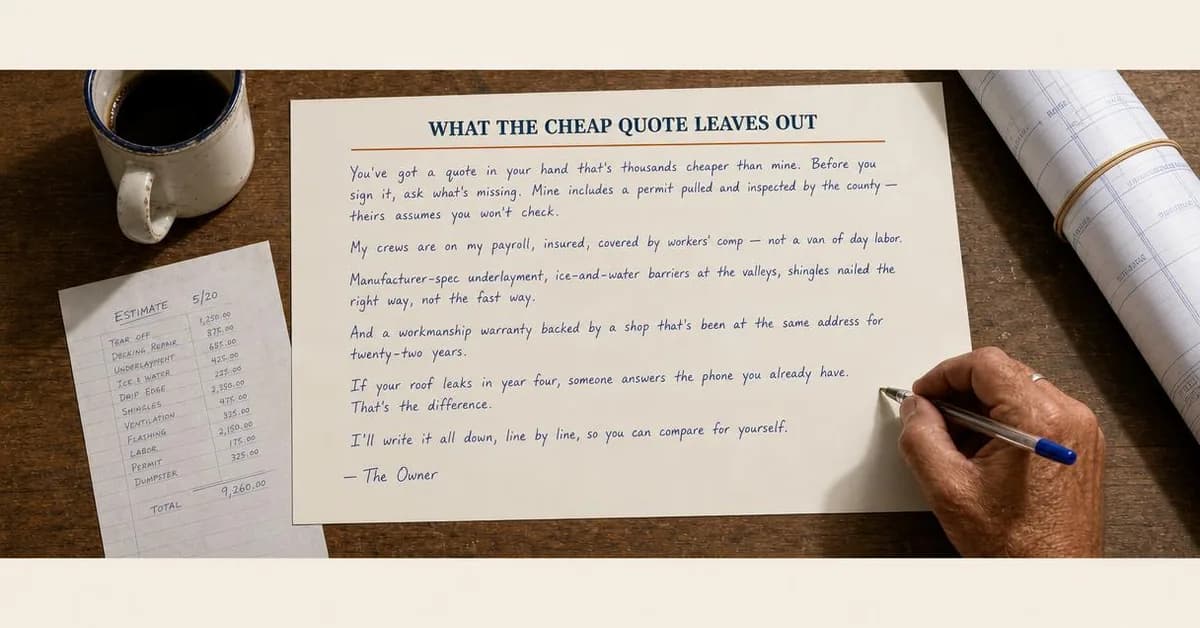 WHAT THE CHEAP QUOTE LEAVES OUT
You've got a quote in your hand that's thousands cheaper than mine. Before you
sign it, ask what's missing. Mine includes a permit pulled and inspected by the county —
theirs assumes you won't check.
My crews are on my payroll, insured, covered by workers' comp — not a van of day labor.
Manufacturer-spec underlayment, ice-and-water barriers at the valleys, shingles nailed the
right way, not the fast way.
And a workmanship warranty backed by a shop that's been at the same address for
twenty-two years.
If your roof leaks in year four, someone answers the phone you already have.
That's the difference.
I'll write it all down, line by line, so you can compare for yourself.
— The Owner
ESTIMATE 5/20
TEAR OFF 1,250.00
DECKING REPAIR 875.00
UNDERLAYMENT 685.00
ICE & WATER 425.00
DRIP EDGE 225.00
SHINGLES 2,350.00
VENTILATION 475.00
FLASHING 325.00
LABOR 2,150.00
PERMIT 175.00
DUMPSTER 325.00
TOTAL 9,260.00